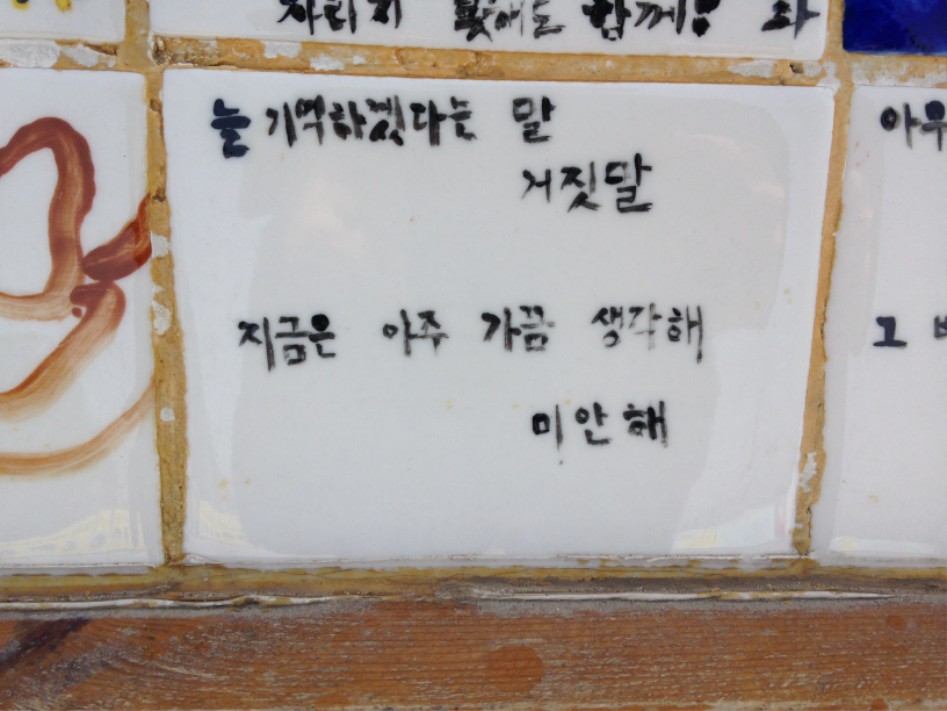 함께!
늘 기억하겠다는 말
거짓말
지금은 아주 가끔 생각해
미안해
아우
그